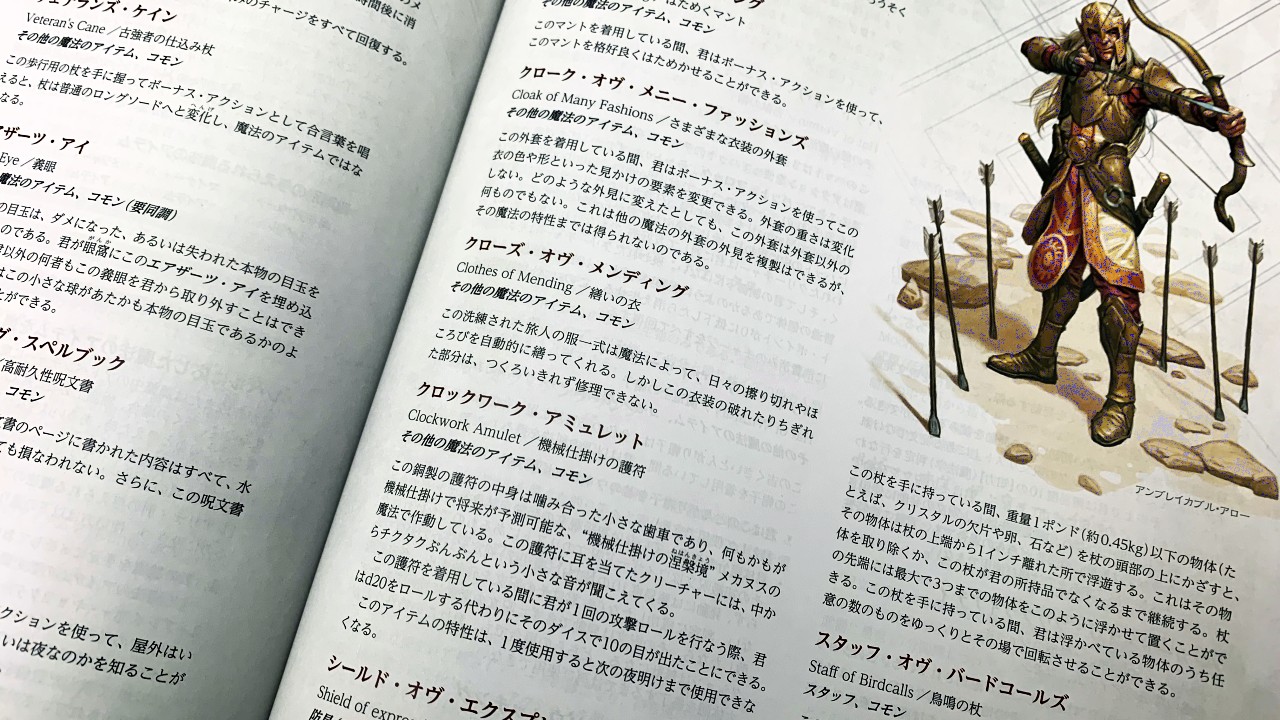 ヴェテランズ・ケイン
Veteran's Cane／古強者の仕込み杖
その他の魔法のアイテム、コモン
この歩行用の杖を手に握ってボーナス・アクションとして合言葉を唱
えると、杖は普通のロングソードへと変化し、魔法のアイテムではな
くなる。
アザーツ・アイ
Eye／義眼
魔法のアイテム、コモン（要同調）
の目玉は、ダメになった、あるいは失われた本物の目玉を
のである。君が眼窩にこのエアザーツ・アイを埋め込
以外の何者もこの義眼を君から取り外すことはでき
はこの小さな球があたかも本物の目玉であるかのよ
とができる。
グ・スペルブック
／高耐久性呪文書
コモン
文書のページに書かれた内容はすべて、水
ても損なわれない。さらに、この呪文書
クションを使って、屋外はい
いは夜なのかを知ることが
のチャージをすべて回復する。
時間後に消
はためくマント
その他の魔法のアイテム、コモン
このマントを着用している間、君はボーナス・アクションを使って、
このマントを格好良くはためかせることができる。
クローク・オヴ・メニー・ファッションズ
Cloak of Many Fashions／さまざまな衣装の外套
その他の魔法のアイテム、コモン
この外套を着用している間、君はボーナス・アクションを使ってこの
衣の色や形といった見かけの要素を変更できる。外套の重さは変化
しない。どのような外見に変えたとしても、この外套は外套以外の
何ものでもない。これは他の魔法の外套の外見を複製はできるが、
その魔法の特性までは得られないのである。
クローズ・オヴ・メンディング
Clothes of Mending／繕いの衣
その他の魔法のアイテム、コモン
この洗練された旅人の服一式は魔法によって、日々の擦り切れやほ
ころびを自動的に繕ってくれる。しかしこの衣装の破れたりちぎれ
た部分は、つくろいきれず修理できない。
クロックワーク・アミュレット
Clockwork Amulet／機械仕掛けの護符
その他の魔法のアイテム、コモン
この銅製の護符の中身は噛み合った小さな歯車であり、何もかもが
機械仕掛けで将来が予測可能な、“機械仕掛けの涅槃境”メカヌスの
魔法で作動している。この護符に耳を当てたクリーチャーには、中か
らチクタクぶんぶんという小さな音が聞こえてくる。
この護符を着用している間に君が1回の攻撃ロールを行なう際、君
はd20をロールする代わりにそのダイスで10の目が出たことにできる。
このアイテムの特性は、1度使用すると次の夜明けまで使用できな
くなる。
シールド・オヴ・エクスプ
Shield of expre
アンブレイカブル・アロー
この杖を手に持っている間、重量1ポンド（約0.45kg）以下の物体（た
とえば、クリスタルの欠片や卵、石など）を杖の頭部の上にかざすと、
その物体は杖の上端から1インチ離れた所で浮遊する。これはその物
体を取り除くか、この杖が君の所持品でなくなるまで継続する。杖
の先端には最大で3つまでの物体をこのように浮かせて置くことがで
きる。この杖を手に持っている間、君は浮かべている物体のうち任
意の数のものをゆっくりとその場で回転させることができる。
スタッフ・オヴ・バードコールズ
Staff of Birdcalls／鳥鳴の杖
スタッフ、コモン